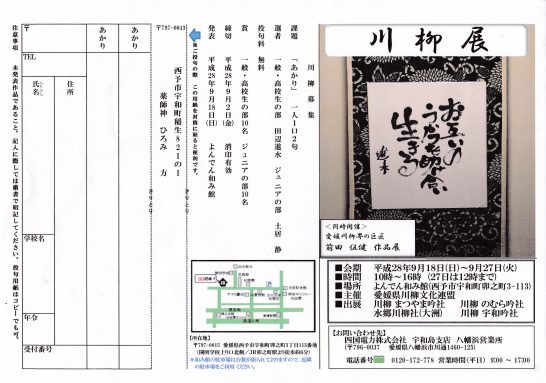 川柳展
お互いに
うかせ助け合い
生きる
<同時開催>
愛媛川柳界の巨匠
前田 伍健 作品展
■会期 平成28年9月18日(日)~9月27日(火)
■時間 10時~16時 (27日は12時まで)
■場所 よんでん和み館(西予市宇和町卯之町3-113)
■主催 愛媛県川柳文化連盟
■出展 川柳 まつやま吟社 川柳 のむら吟社
水郷川柳社(大洲) 川柳 宇和吟社
【お問い合わせ先】
四国電力株式会社 宇和島支店 八幡浜営業所
(〒796-0037 愛媛県八幡浜市川通1460-125)
電話番号 0120-172-778 営業時間(平日) 9:00 ~ 17:00
川柳募集
課題 「あかり」 一人1口2句
選者 一般・高校生の部 田辺進水 ジュニアの部 土居 静
投句料 無料
賞 一般・高校生の部10名 ジュニアの部10名
締切 平成28年9月2日(金) 消印有効
発表 平成28年9月18日(日) よんでん和み館
※ご投句の際、この用紙を封筒に貼ると便利です。
〒797-0013
西予市宇和町稲生821の1
薬師神 ひろみ 方
きりとり
きりとり
【所在地】
〒797-0015 愛媛県西予市宇和町卯之町3丁目113番地
あかり
あかり
〒
TEL
住所
氏名
学校名
年令
受付番号
注意事項 未発表作品であること。記入に際しては楷書で明記してください。投句用紙はコピーでも可。